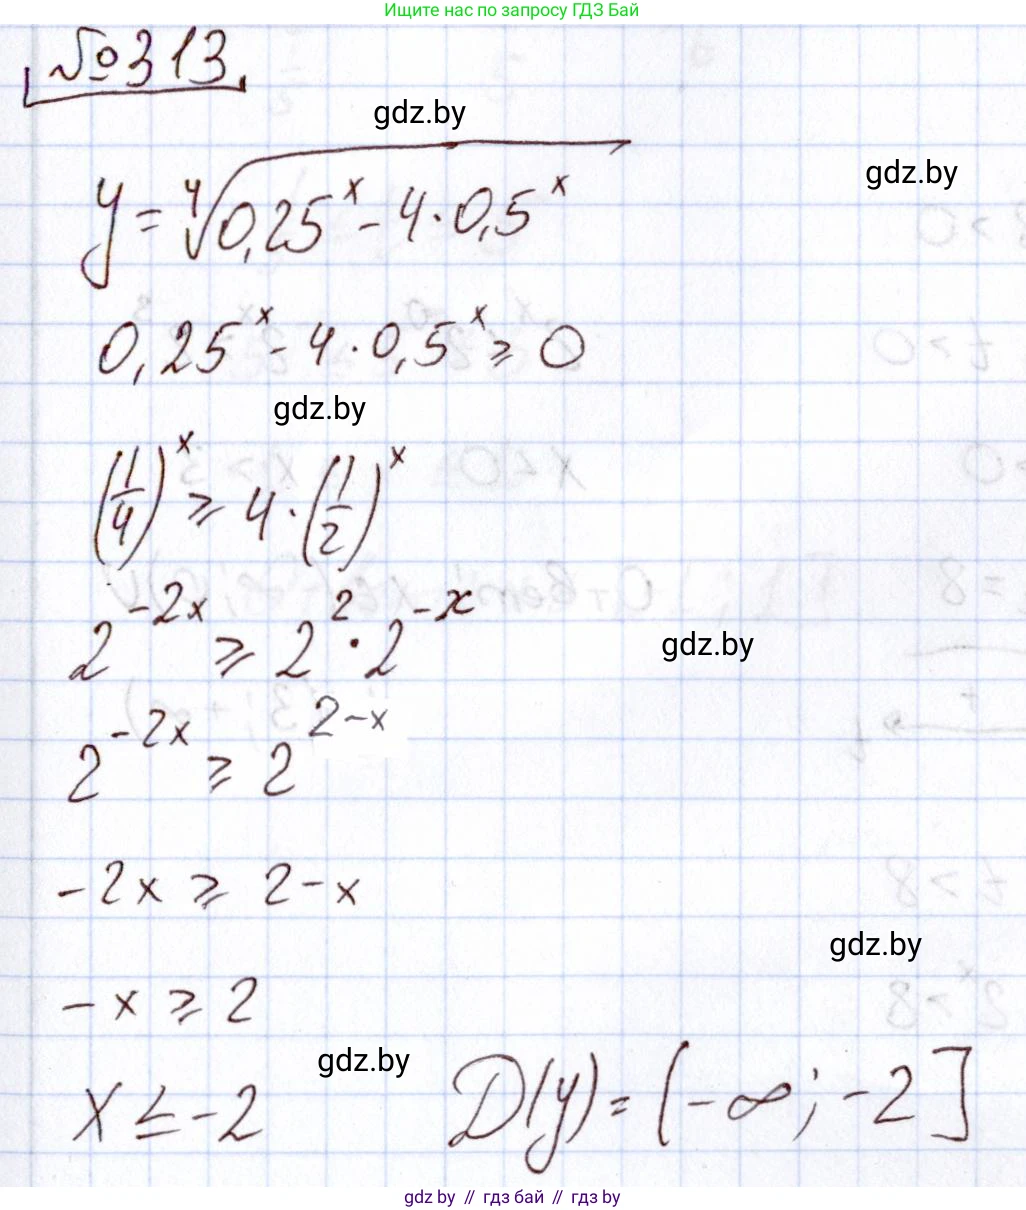 Ищите нас по запросу ГДЗ Бай
№313
gdz.by
gdz.by
y = ⁴√(0,25ˣ - 4·0,5ˣ)
0,25ˣ - 4·0,5ˣ ⩾ 0
gdz.by
(1/4)ˣ ⩾ 4·(1/2)ˣ
2⁻²ˣ ⩾ 2²·2⁻ˣ
gdz.by
2⁻²ˣ ⩾ 2²⁻ˣ
-2x ⩾ 2-x
gdz.by
-x ⩾ 2
gdz.by
x ≤ -2 D(y) = (-∞; -2]
gdz by // гдз бай // гдз by